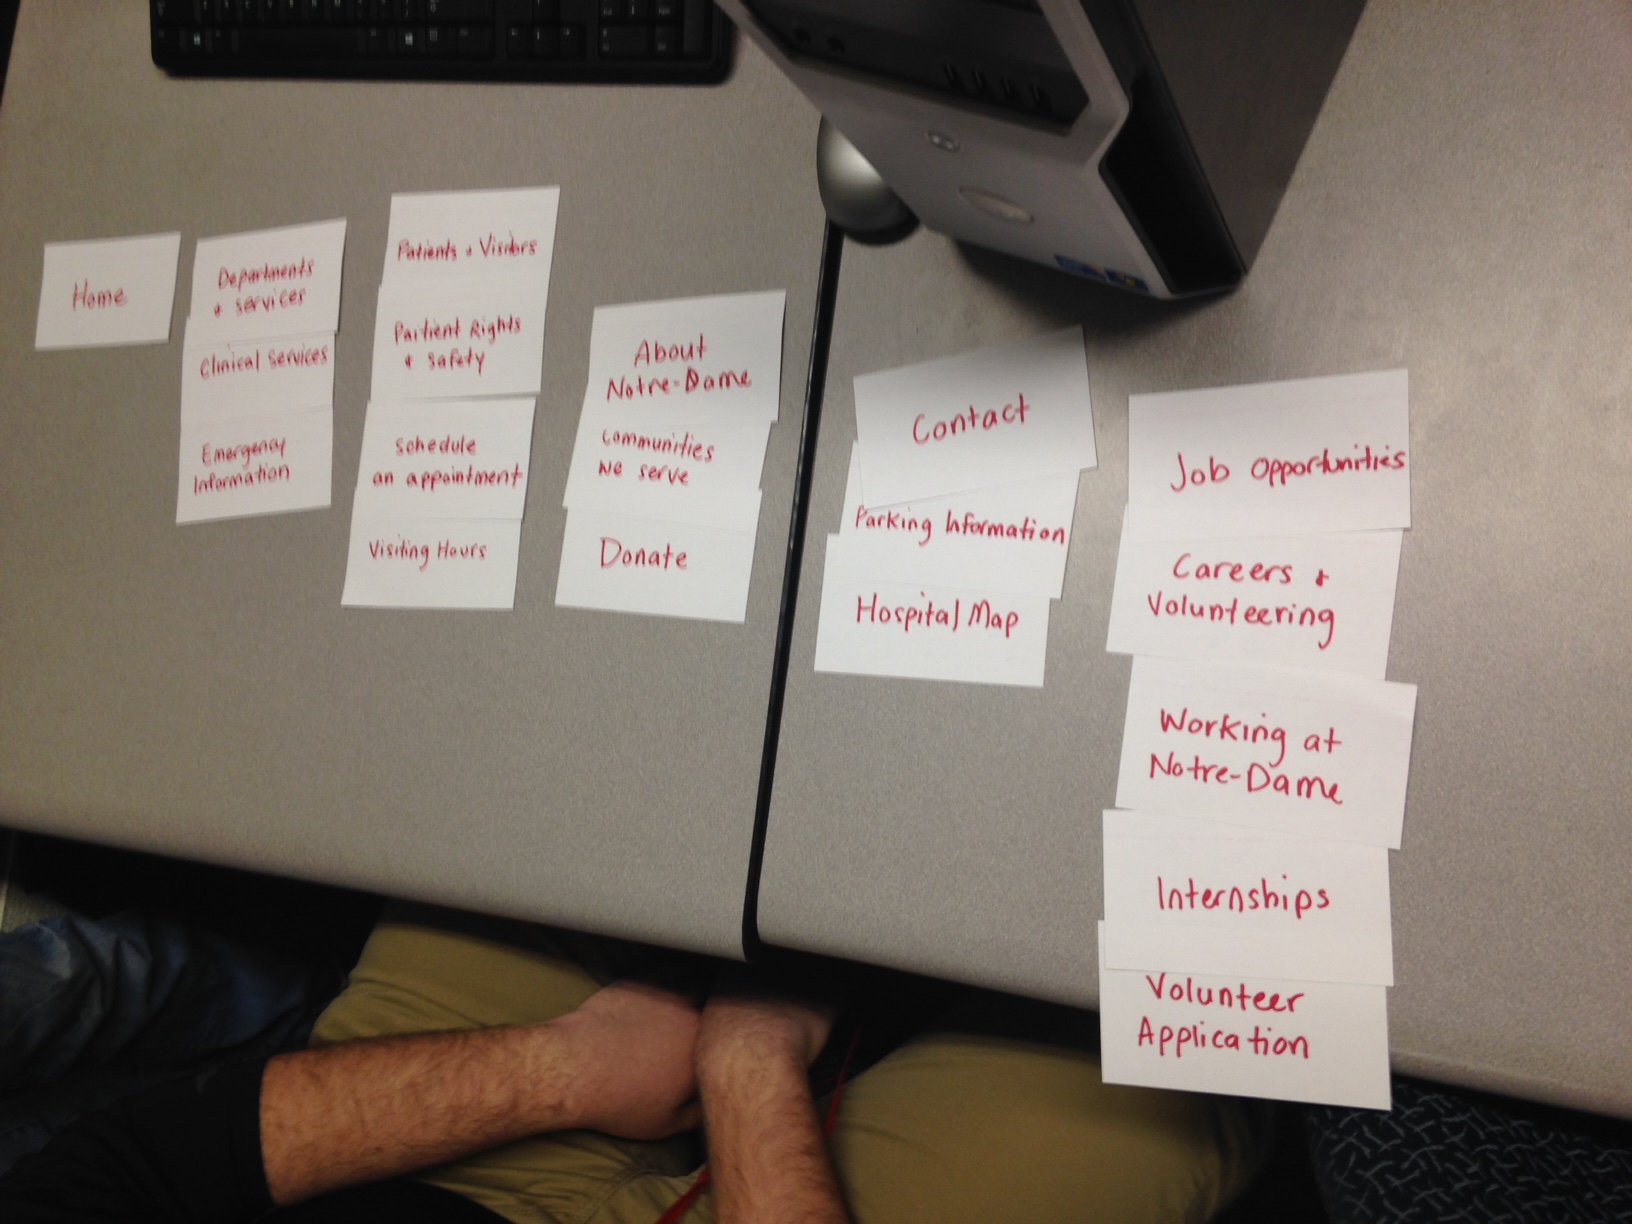 Home
Departments
+ services
Clinical services
Emergency
Information
Patients + Visitors
Patient Rights
+ safety
Schedule
an appointment
Visiting Hours
About
Notre-Dame
Communities
we serve
Donate
Contact
Parking Information
Hospital Map
Job opportunities
Careers +
Volunteering
Working at
Notre-Dame
Internships
Volunteer
Application